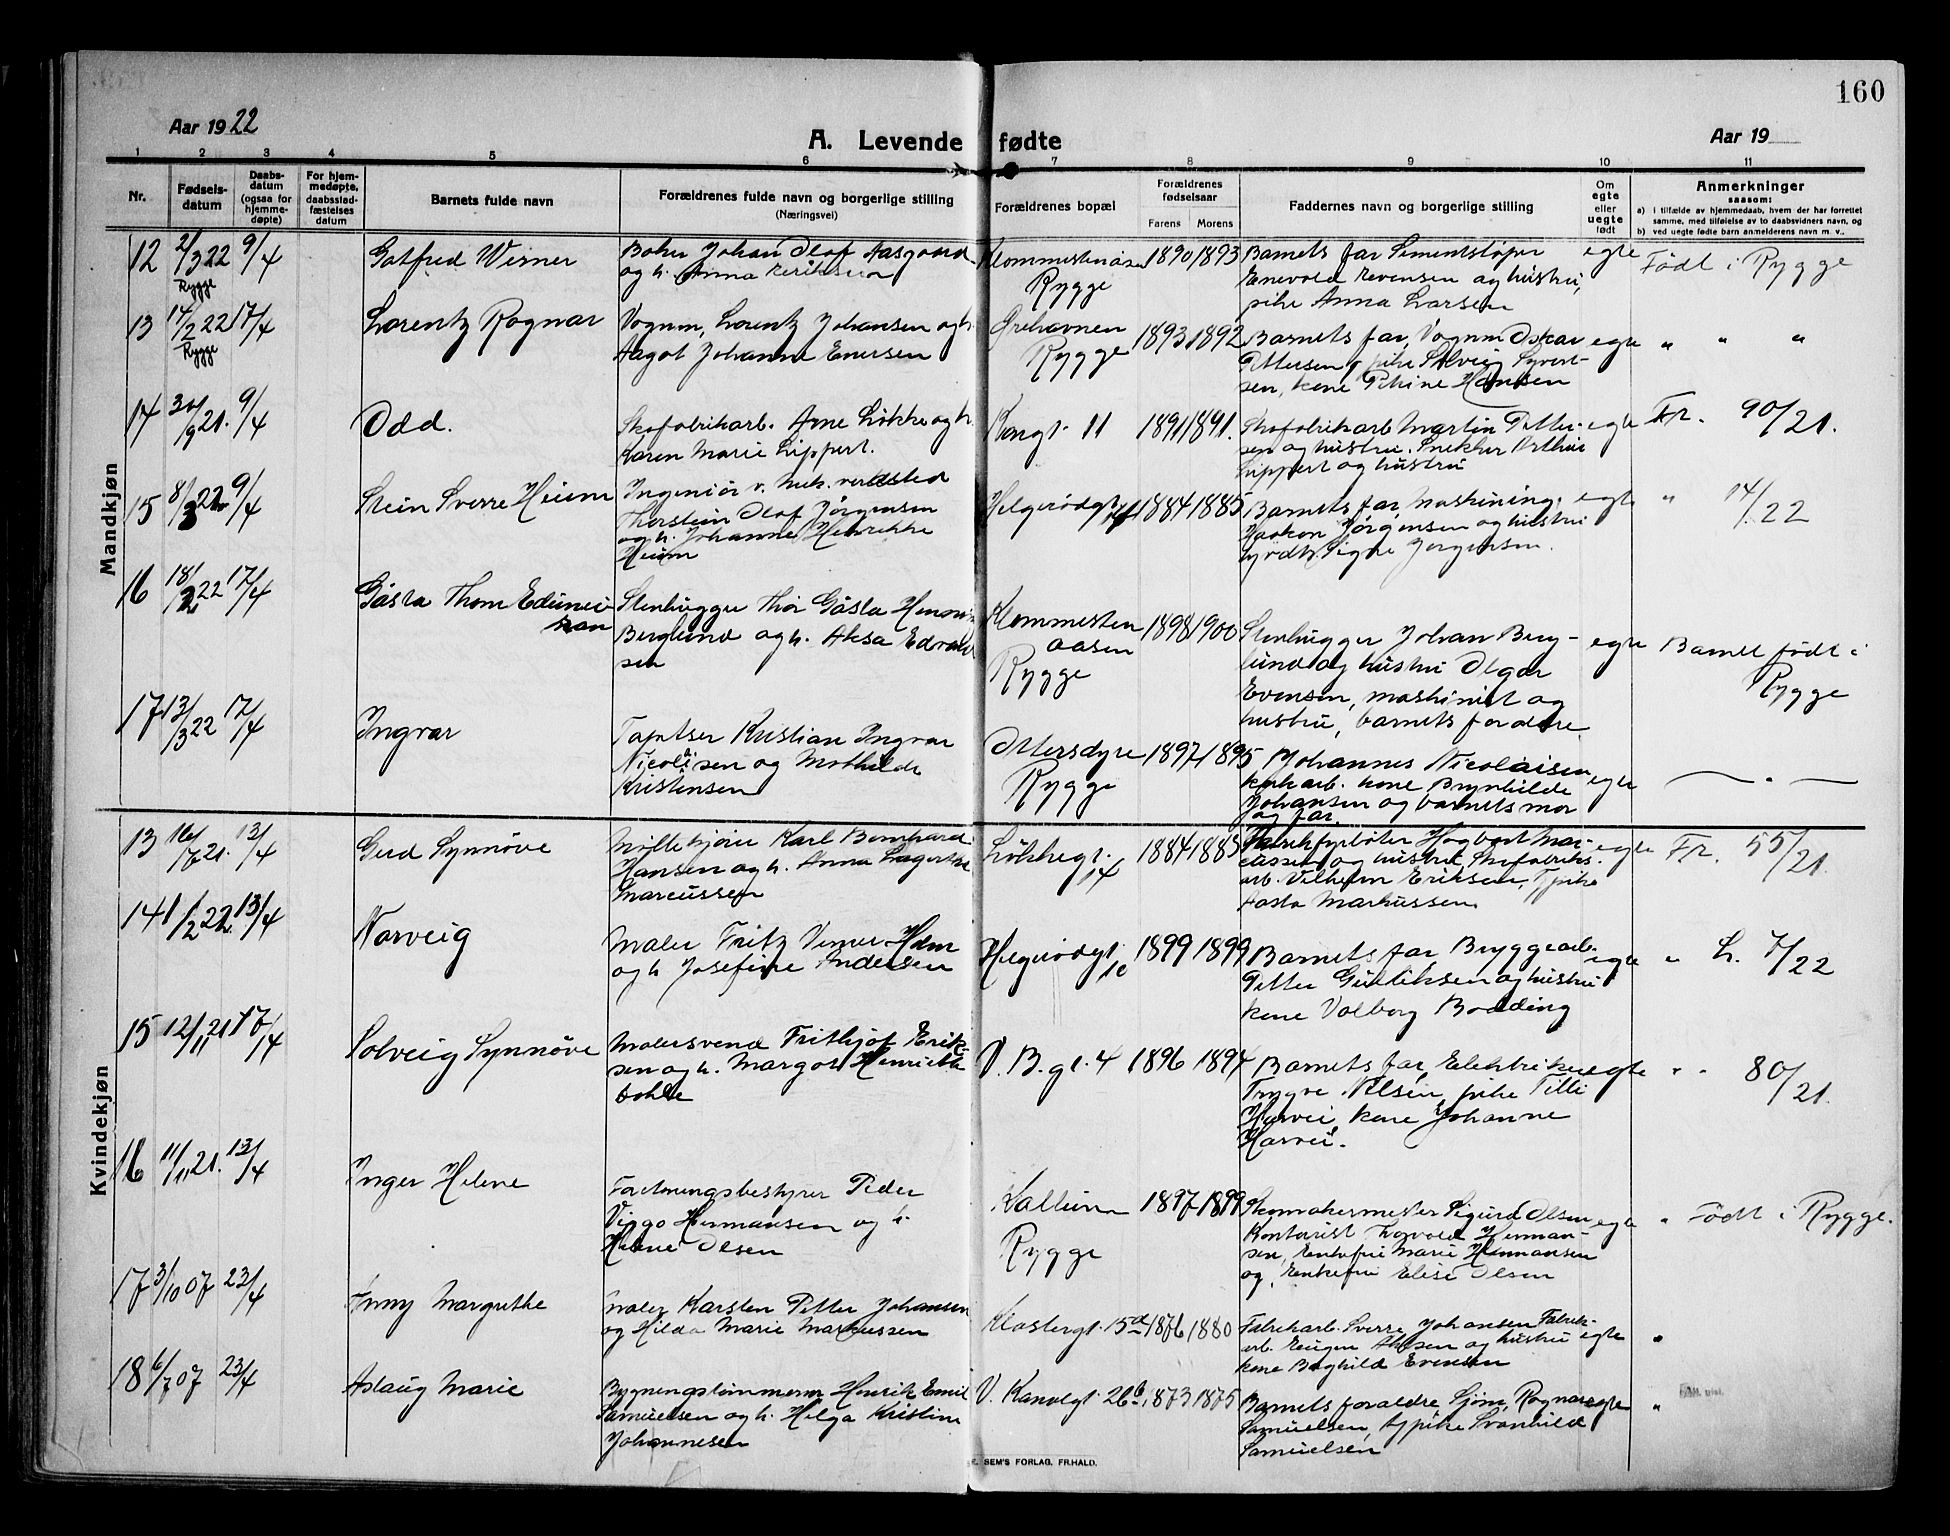 160
Aar 1922
A. Levende fødte
Aar 19
1 2 3 4 5 6 7 8 9 10 11
Nr.
Fødsels-
datum
Daabs-
datum
(ogsaa for
hjemme-
døpte)
For hjem-
medøpte,
daabsstad-
fæstelses
datum
Barnets fulde navn
Forældrenes fulde navn og borgerlige stilling
(Næringsvei)
Forældrenes bopæl
Forældrenes
fødselsaar
Farens Morens
Faddernes navn og borgerlige stilling
Om
egte
eller
uegte
født
Anmerkninger
saasom:
a) i tilfælde av hjemmedaab, hvem der har forrettet
samme, med tilføielse av to daabsvidners navn, og
b) ved uegte fødte barn anmelderens navn m. v.
Mandkjøn
12 2/3 22 9/4
Rygge
Gotfred Werner
Johan Olof Aasgaard
og h. Anna Eriksen
Klommestenaasen
Rygge
1890 1893
Barnets far Sementstøper
Enevold Evensen og hustru,
pike Anna Larsen
egte
Født i Rygge
13 14/2 22 17/4
Rygge
Lorentz Ragnar
Vognm. Lorentz Johansen og h.
Aagot Johanne Enersen
Ørehavnen
Rygge
1893 1892
Barnets far, Vognm Oskar
Pettersen, pike Solveig Syvert-
sen, kone Petrine Hansen
egte
" " "
14 30/9 21. 9/4
Odd.
Skofabrikarb. Arne Løkke og h.
Karen Marie Lippert.
Kongt. 11
1891 1891.
Skofabrikarb Martin Petter-
sen og hustru. Snekker Arthur
Lippert og hustru
egte
Fr. 90/21.
15 8/3 22 9/4
Stein Sverre Heum
Ingeniør v. mek. verksted
Thorstein Olaf Jørgensen
og h. Johanne Henrikke
Heum
Helgerødgt.
1884 1885
Barnets far, Maskining.
Haakon Jørgensen og hustru
Signe Jørgensen.
egte
" 14/22
16 18/2 22 17/4
Gösta Thore
Stenhugger Thor Gösta
Berglund og h. Aksa
sen
Klommesten
aasen
Rygge
1898 1900
Stenhugger Johan Berg-
lund og hustru Olgar
Evensen, maskinist og
hustru, barnets foraldre
egte
Barnet født i
Rygge
17 13/3 22 17/4
Ingvar
Kristian Ingvar
Nicolaisen og Mathilde
Kristensen
Ottersdyre
Rygge
1897 1895
Johannes Nicolaisen
kone Brynhilde
Johansen og barnets mor
og far.
egte
— " —
Kvindekjøn
13 16/8 21. 13/4
Gerd Synnøve
Karl Bernhard
Hansen og h. Anna Lagertha
Marcussen
Løkkegt.
14
1884 1885
Fabrikfyrbøter Hagbart Mar-
cussen og hustru, Skofabriks-
arb. Vilhelm Eriksen, Tj.pike
Aasta Markussen.
egte
Fr. 55/21.
14 1/2 22. 13/4
Norveig
Maler Fritz Verner Holm
og h Josefine Andersen
Helgerødgt.
1899 1899
Barnets far Bryggearb.
Petter Gulliksen og hustru
kone Valborg Bodding
egte
" L. 7/22
15 12/11 21 17/4
Solveig Synnøve
Malersvend Frithjof Erik-
sen og h. Margot Henriette
Dohle
V. B. gt. 4
1896 1894
Barnets far, Elektriker
Trygve Nilsen, pike Tilli
Harvei, kone Johanne
Harvei.
egte
" " 80/21.
16 11/11 21. 13/4
Inger Helene
Forretningsbestyrer Peder
Viggo Hermansen og h.
Helene Olsen
Kallum
Rygge
1897 1899
Skomakermester Sigurd Olsen
Kontorist Hermansen,
Enkefru Marie Hermansen
og, Enkefru Elise Olsen
egte
" Født i Rygge.
17 3/10 07 23/4
Anny Margrethe
Maler Karsten Petter Johansen
og Hilda Marie Markussen
Klostergt. 15
1876 1880
Fabrikarb. Sverre Johansen Fabrik-
arb. Eugen Olsen og hustru
kone Boghild Evensen
egte
"
18 6/7 07 23/4
Aslaug Marie
Bygningstømmerm Henrik Emil
Samuelsen og h. Helga Kristine
Johannesen
V. Kanalgt. 26b.
1873 1875
Barnets foraldre, Sjøm. Ragnar
Samuelsen, tj.pike Svanhild
Samuelsen
egte
"
SEM'S FORLAG, FR.HALD.